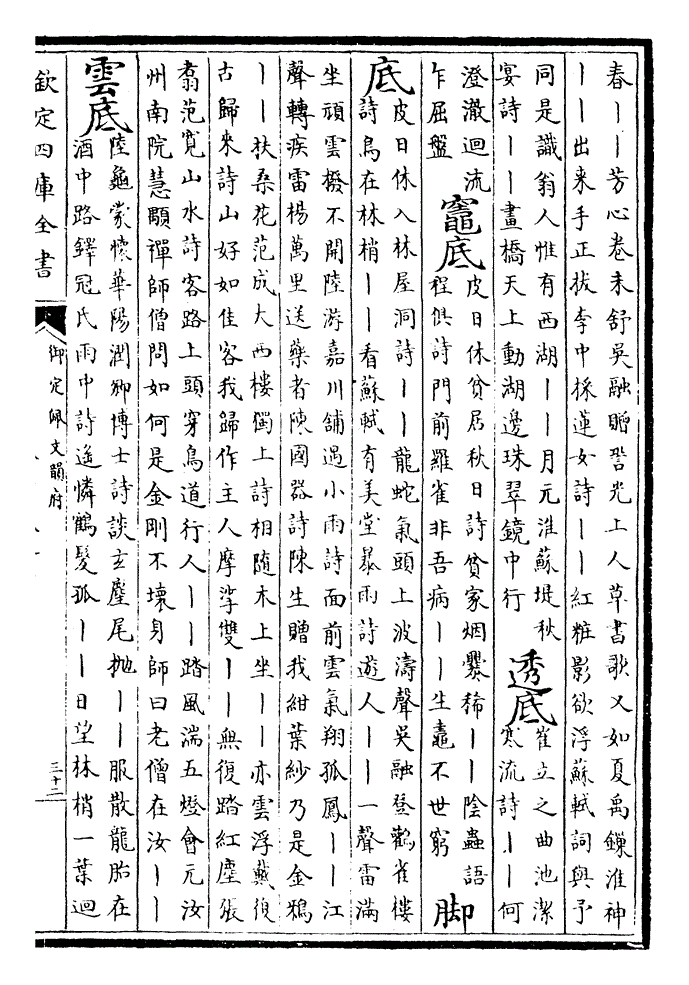 春丨丨芳心卷未舒吳融贈䛒光上人草書歌又如夏禹鏁淮神
丨丨出来手正拔李中採蓮女詩丨丨紅粧影欲浮蘇軾詞與予
同是識翁人惟有西湖丨丨月元淮蘇堤秋
宴詩丨丨畫橋天上動湖邊珠翠鏡中行
透底
崔立之曲池潔
寒流詩丨丨何
澄澈迴流
乍屈盤
竈底
皮日休貧居秋日詩貧家烟爨稀丨丨陰蟲語
程俱詩門前羅雀非吾病丨丨生鼃不世窮
脚
底
皮日休入林屋洞詩丨丨龍蛇氣頭上波濤聲吳融登鸛雀樓
詩鳥在林梢丨丨看蘇軾有美堂暴雨詩遊人丨丨一聲雷滿
坐頑雲撥不開陸游嘉川舖遇小雨詩面前雲氣翔孤鳳丨丨江
聲轉疾雷楊萬里送藥者陳國器詩陳生贈我紺葉紗乃是金鴉
丨丨扶桑花范成大西樓獨上詩相隨木上坐丨丨亦雲浮戴復
古歸來詩山好如佳客我歸作主人摩挲雙丨丨無復踏紅塵張
翥范寛山水詩客路上頭穿鳥道行人丨丨踏風湍五燈會元汝
州南院慧顒禪師僧問如何是金剛不壞身師曰老僧在汝丨丨
雲底
陸龜蒙懷華陽潤卿博士詩談玄麈尾抛丨丨服散龍胎在
酒中路鐸冠氏雨中詩遙憐鶴髮孤丨丨日望林梢一葉迴
欽定四庫全書
御定佩文韻府
三十二